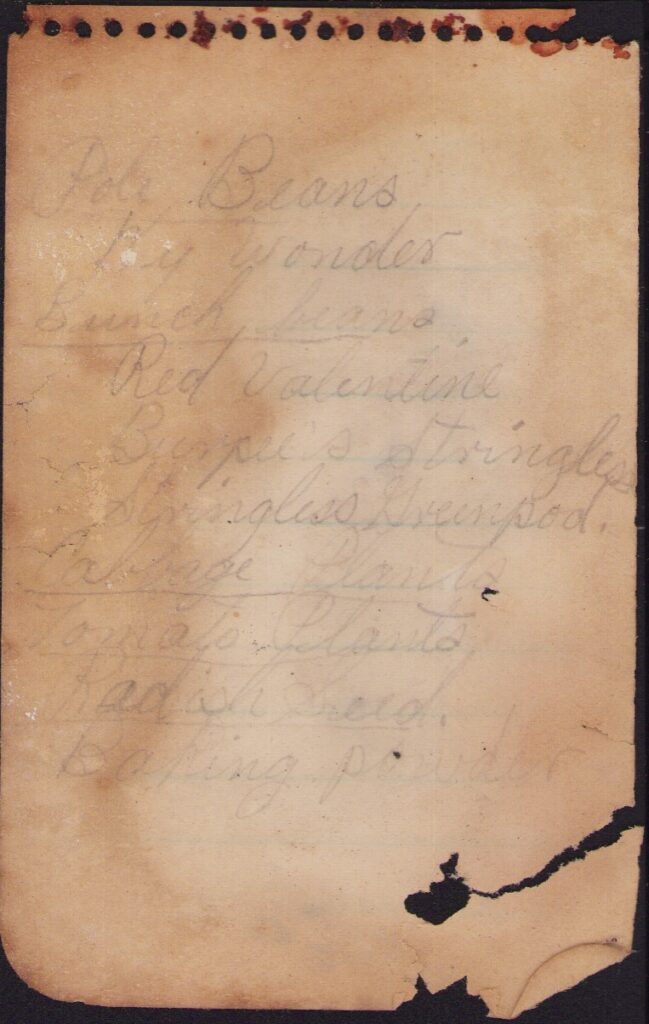 Pole Beans
Ky Wonder
Bunch beans
Red Valentine
Burpee's Stringless
Stringless Greenpod.
Cabbage Plants
Tomato Plants
Radish Seed.
Baking powder